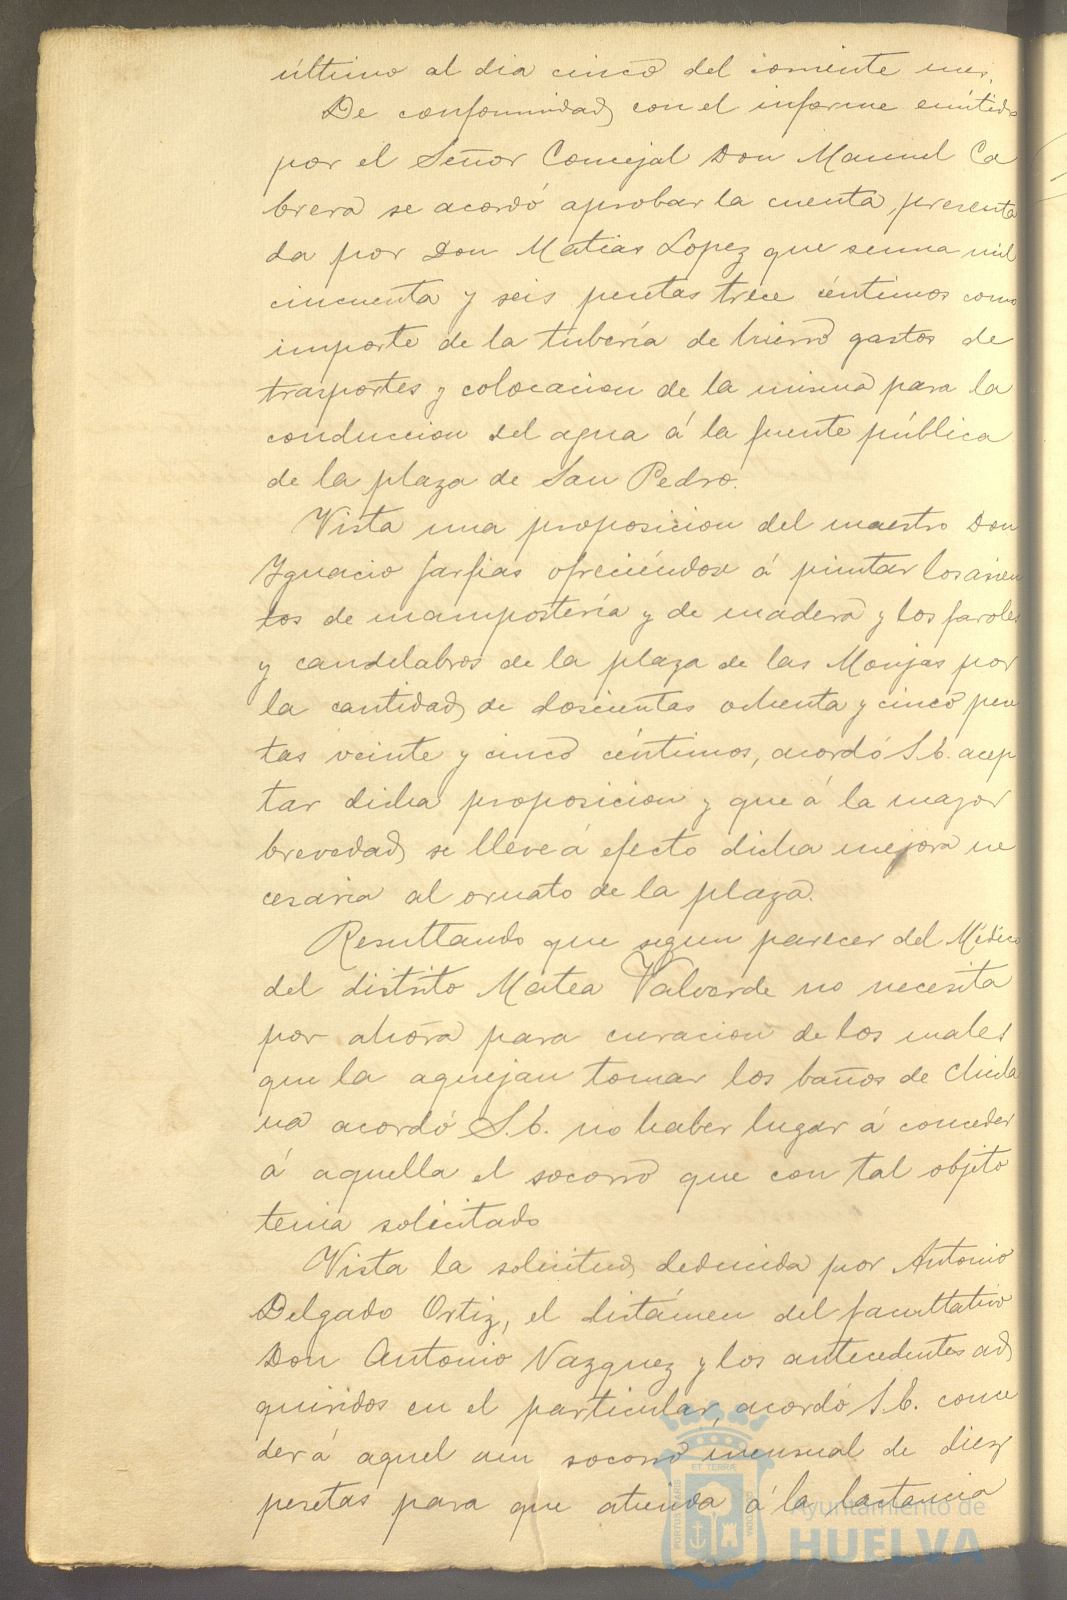 último al dia cinco del corriente mes.
De conformidad con el informe emitido
por el Señor Concejal Don Manuel Ca
brera se acordó aprobar la cuenta presenta
da por Don Matias Lopez que suma mil
cincuenta y seis pesetas trece céntimos como
importe de la tubería de hierro gastos de
trasportes y colocacion de la misma para la
conduccion del agua á la fuente pública
de la plaza de San Pedro.
Vista una proposicion del maestro Don
Ygnacio Farfias ofreciéndose á pintar los asien
tos de mampostería y de madera y los faroles
y candelabros de la plaza de las Monjas por
la cantidad de doscientas ochenta y cinco pese
tas veinte y cinco céntimos, acordó S.E. acep
tar dicha proposicion y que á la mayor
brevedad se lleve á efecto dicha mejora ne
cesaria al ornato de la plaza.
Resultando que segun parecer del Médico
del distrito Matea Valverde no necesita
por ahora para curacion de los males
que la aquejan tomar los baños de Chicla
na acordó S.E. no haber lugar á conceder
á aquella el socorro que con tal objeto
tenia solicitado
Vista la solicitud deducida por Antonio
Delgado Ortiz, el dictámen del facultativo
Don Antonio Vazquez y los antecedentes ad
quiridos en el particular, acordó S.E. conce
der á aquel un socorro mensual de diez
pesetas para que atienda á la lactancia
Ayuntamiento de
HUELVA
PORTUS MARIS
ET TERRAE
CUSTODIA